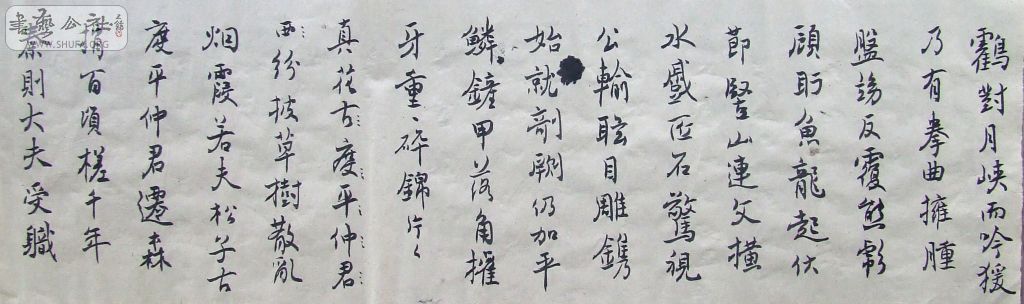 鶴對月峽而吟猨
乃有拳曲擁腫
盤坳反覆熊彪
顧盼魚龍起伏
節豎山連文橫
水蹙匠石驚視
公輸眩目雕鐫
始就剞劂仍加平
鱗鏟甲落角摧
牙重々碎錦片々
真花古度平仲君
紛披草樹散亂
烟霞若夫松子古
度平仲君遷森
梢百頃槎千年
秦則大夫受職
書藝公社
WWW.SHUFA.ORG